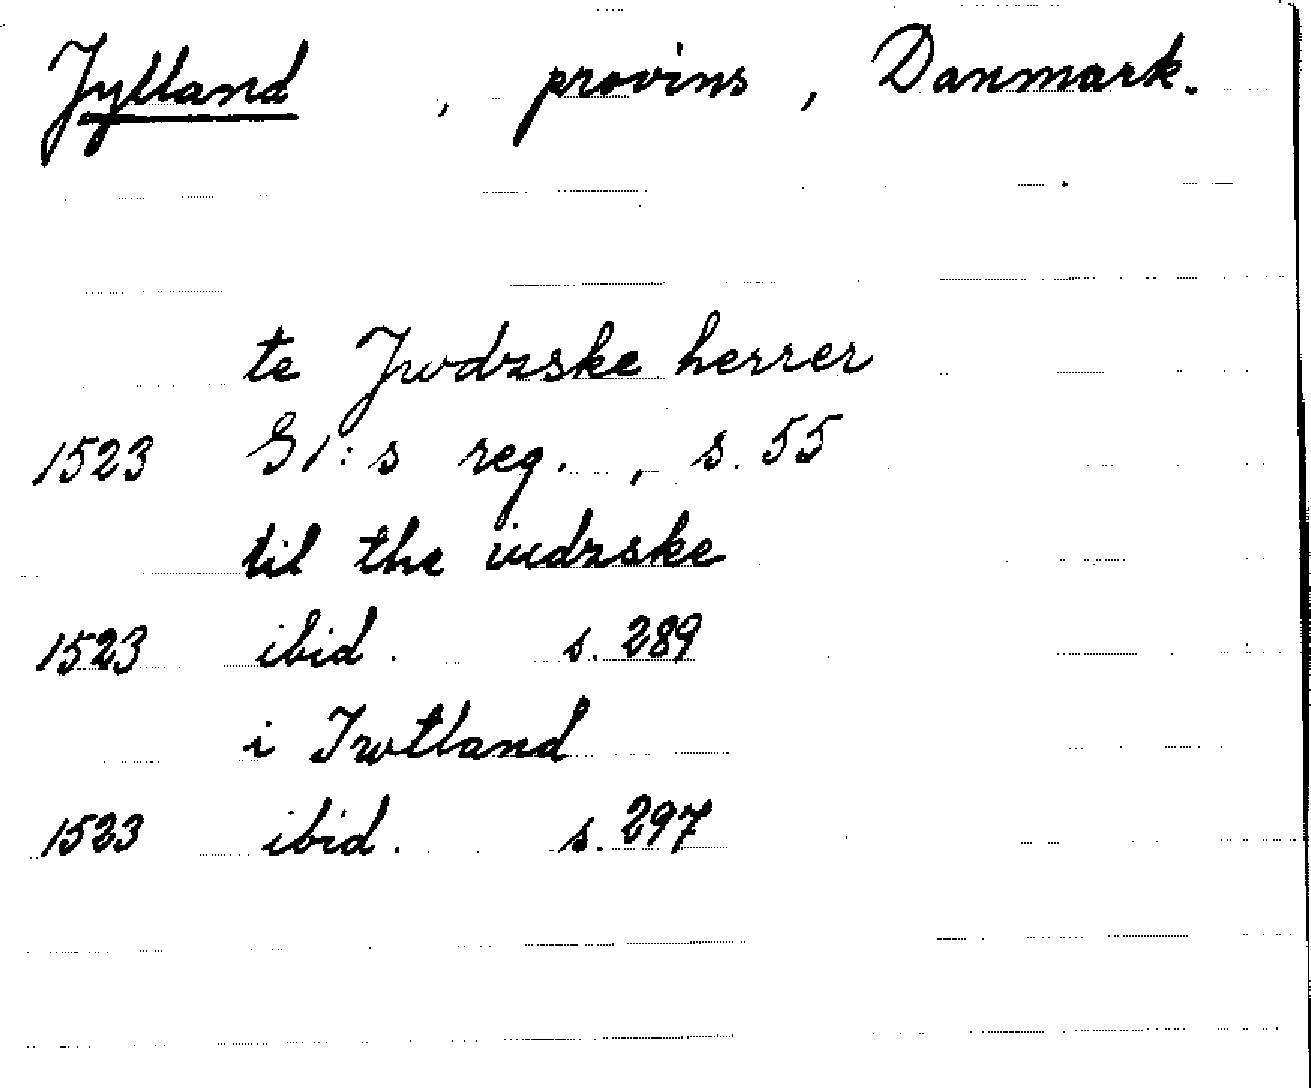 Jylland , provins , Danmark.
te Jwdzske herrer
1523 G1:s reg. , s. 55
til the iudzske
1523 ibid. s. 289
i Iwtland
1523 ibid. s. 297